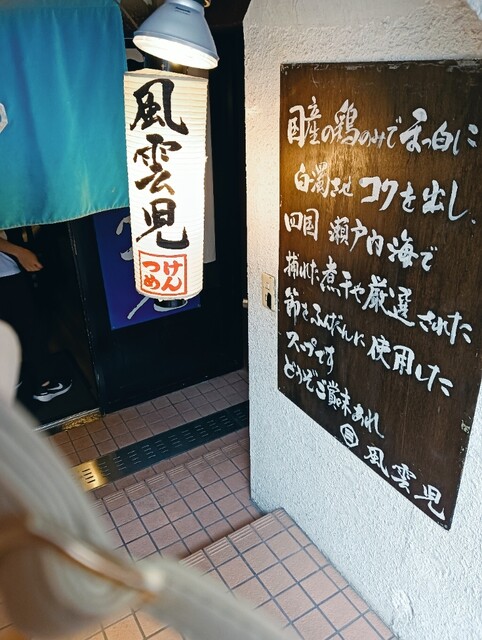 風雲児
つけ
めん
国産の鶏のみで真っ白に
白濁させ コクを出し、
四国 瀬戸内海で
捕れた煮干や厳選された
節をふんだんに使用した
スープです
どうぞご賞味あれ
風雲児